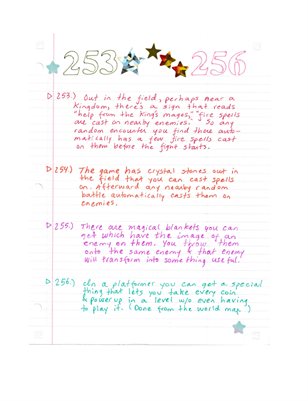 253 256
253.) Out in the field, perhaps near a
Kingdom, there's a sign that reads
"help from the Kings mages," fire spells
are cast on nearby enemies." So any
random encounter you find there auto-
matically has a few fire spells cast
on them before the fight starts.
254.) The game has crystal stones out in
the field that you can cast spells
on. Afterward any nearby random
battle automatically casts them on
enemies.
255.) There are magical blankets you can
get which have the image of an
enemy on them. You throw them
onto the same enemy & that enemy
will transform into something useful.
256.) In a platformer you can get a special
thing that lets you take every coin
& powerup in a level w/o even having
to play it. (Done from the world map.)